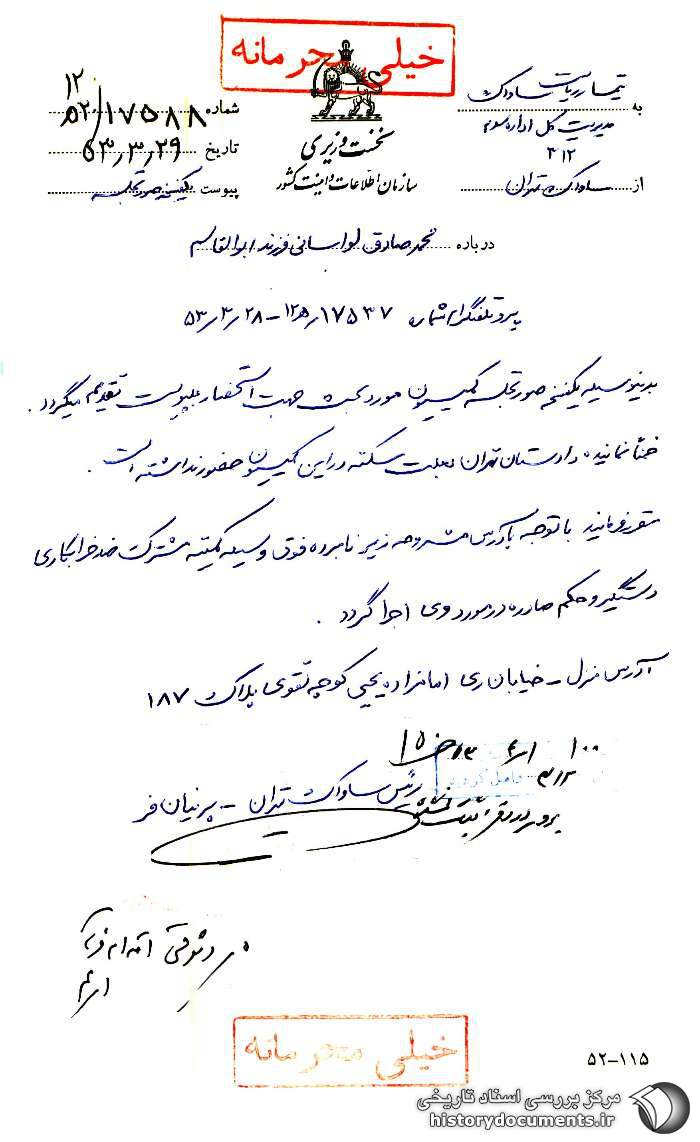 خیلی محرمانه
به تیمسار ریاست ساواک
مدیریت کل اداره سوم
۳۱۲
از ساواک تهران
نخست وزیری
سازمان اطلاعات و امنیت کشور
شماره ۱۷۵۸۸/۵۲ ۱۲
تاریخ ۵۳٫۳٫۲۹
پیوست یکنسخه صورتجلسه
درباره محمد صادق لواسانی فرزند ابوالقاسم
پیرو تلفنگرام شماره ۱۷۵۳۷ - ۵۳٫۳٫۲۸
بدینوسیله یکنسخه صورتجلسه کمیسیون مورد بحث جهت استحضار بپیوست تقدیم میگردد .
ضمناً نماینده دادستان تهران بعلت سکته در این کمیسیون حضور نداشته است .
مقرر فرمایید با توجه بآدرس مشروحه زیر نامبرده فوق وسیله کمیته مشترک ضد خرابکاری
دستگیر و حکم صادره در مورد وی اجرا گردد .
آدرس منزل - خیابان ری امامزاده یحیی کوچه تقوی پلاک ۱۸۷
رئیس ساواک تهران - پرنیان فر
۳۱۲
خیلی محرمانه
۵۲-۱۱۵
مرکز بررسی اسناد تاریخی
historydocuments.ir